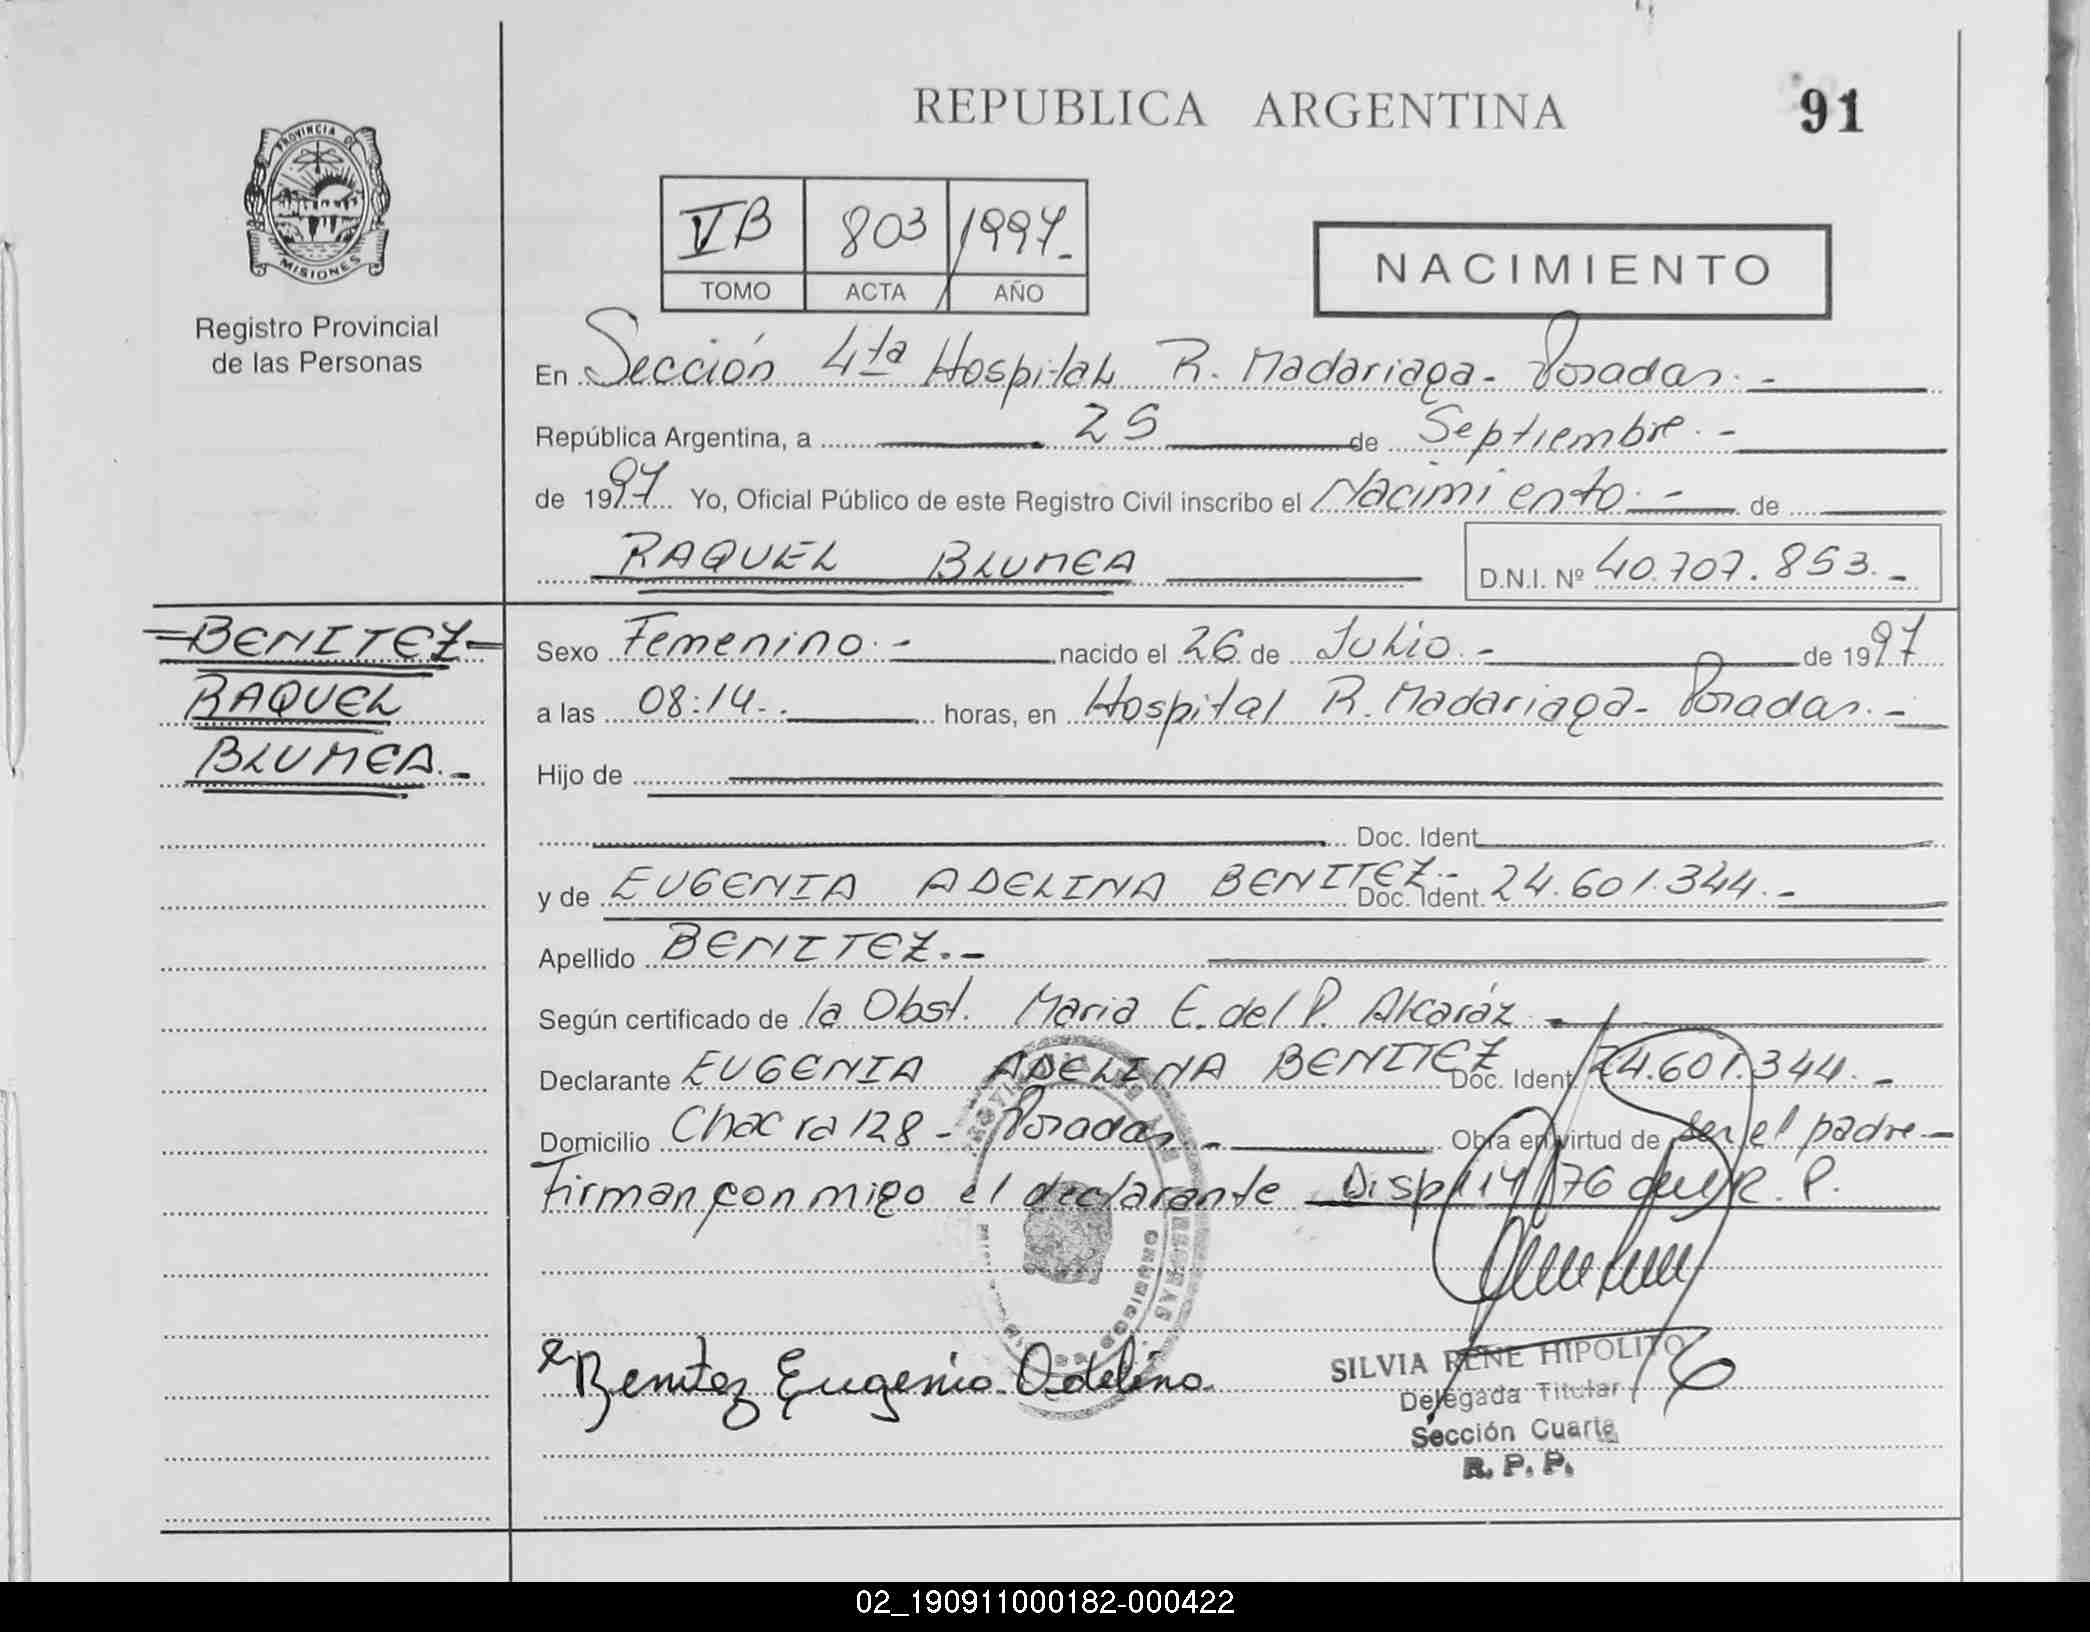 REPUBLICA ARGENTINA
91
PROVINCIA DE
MISIONES
Registro Provincial
de las Personas
VB 803 1997.-
TOMO ACTA AÑO
NACIMIENTO
En Sección 4ta Hospital R. Madariaga - Posadas.-
República Argentina, a 25 de Septiembre.-
de 1997 Yo, Oficial Público de este Registro Civil inscribo el Nacimiento.- de
RAQUEL BLUMEA
D.N.I. Nº 40.707.853.-
=BENITEZ=
RAQUEL
BLUMEA.-
Sexo Femenino.- nacido el 26 de Julio.- de 1997
a las 08:14.- horas, en Hospital R. Madariaga - Posadas.-
Hijo de
Doc. Ident.
y de EUGENIA ADELINA BENITEZ.- Doc. Ident. 24.601.344.-
Apellido BENITEZ.-
Según certificado de la Obst. Maria E. del P. Alcaráz.-
Declarante EUGENIA ADELINA BENITEZ Doc. Ident. 24.601.344.-
Domicilio Chacra 128 - Posadas.- Obra en virtud de ser el padre-
Firman conmigo el declarante Disp 114/76 del R. P.
Benitez Eugenia Adelina
SILVIA RENE HIPOLITO
Delegada Titular
Sección Cuarta
R. P. P.
02_190911000182-000422